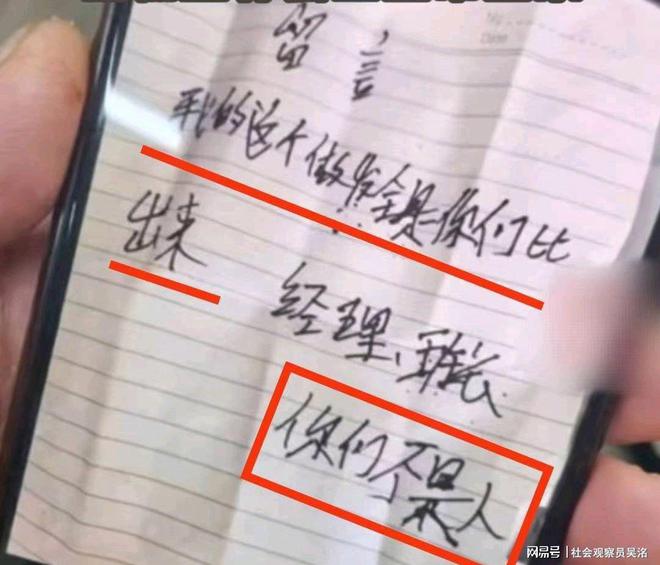 No
Date
留言
我的这个做发全是你们比
出来
经理、班长
你们不是人
网易号 | 社会观察员吴洺